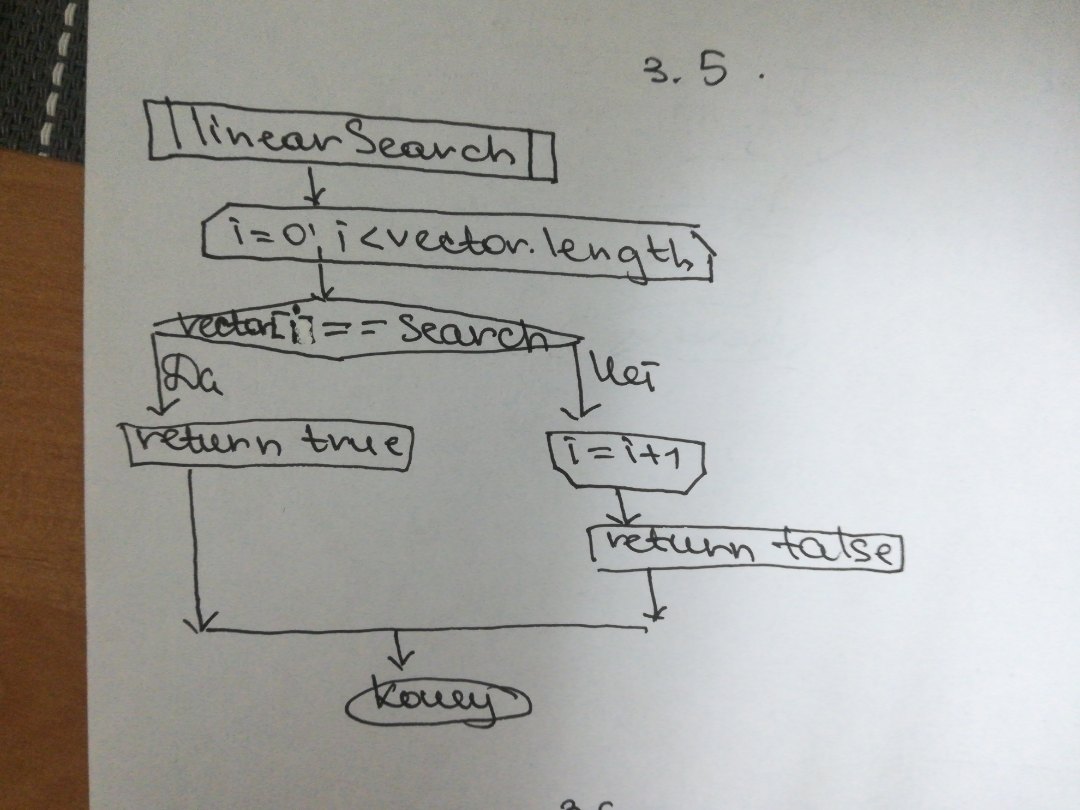 3.5.
linearSearch
i=0; i<vector.length
vector[i]==search
Да
Нет
return true
i=i+1
return false
Конец
3.6